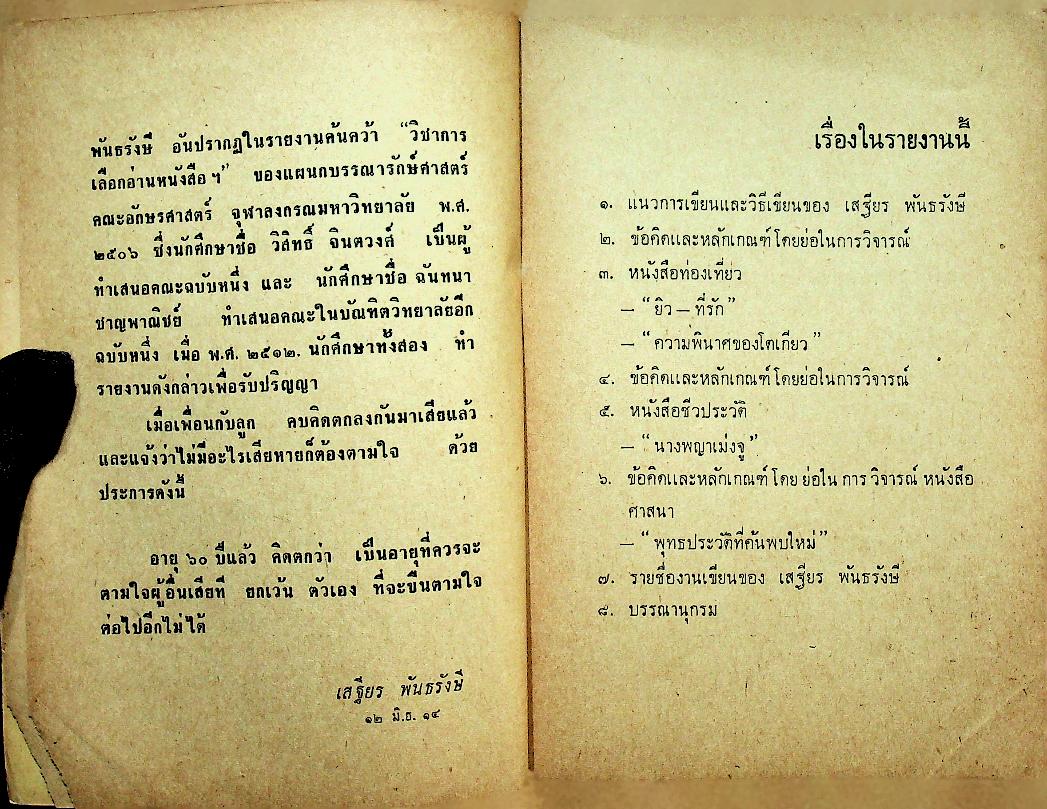 พันธรังษี อันปรากฏในรายงานค้นคว้า “วิชาการ
เลือกอ่านหนังสือ ฯ” ของแผนกบรรณารักษ์ศาสตร์
คณะอักษรศาสตร์ จุฬาลงกรณมหาวิทยาลัย พ.ศ.
๒๕๐๖ ซึ่งนักศึกษาชื่อ วิสิทธิ์ จินตวงศ์ เป็นผู้
ทำเสนอคณะฉบับหนึ่ง และ นักศึกษาชื่อ ฉันทนา
ชาญพาณิชย์ ทำเสนอคณะในบัณฑิตวิทยาลัยอีก
ฉบับหนึ่ง เมื่อ พ.ศ. ๒๕๑๒. นักศึกษาทั้งสอง ทำ
รายงานดังกล่าวเพื่อรับปริญญา
เมื่อเพื่อนกับลูก คบคิดตกลงกันมาเสียแล้ว
และแจ้งว่าไม่มีอะไรเสียหายก็ต้องตามใจ ด้วย
ประการดังนี้
อายุ ๖๐ ปีแล้ว คิดตกว่า เป็นอายุที่ควรจะ
ตามใจผู้อื่นเสียที ยกเว้น ตัวเอง ที่จะขืนตามใจ
ต่อไปอีกไม่ได้
เสฐียร พันธรังษี
๑๒ มิ.ย. ๑๔
เรื่องในรายงานนี้
๑. แนวการเขียนและวิธีเขียนของ เสฐียร พันธรังษี
๒. ข้อคิดและหลักเกณฑ์โดยย่อในการวิจารณ์
๓. หนังสือท่องเที่ยว
– “ ยิว – ที่รัก ”
– “ ความพินาศของโตเกียว ”
๔. ข้อคิดและหลักเกณฑ์โดยย่อในการวิจารณ์
๕. หนังสือชีวประวัติ
– “ นางพญาเม่งจู ”
๖. ข้อคิดและหลักเกณฑ์ โดย ย่อใน การ วิจารณ์ หนังสือ
ศาสนา
– “ พุทธประวัติที่ค้นพบใหม่ ”
๗. รายชื่องานเขียนของ เสฐียร พันธรังษี
๘. บรรณานุกรม